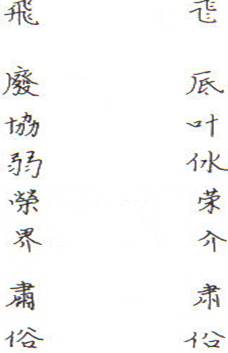 飛
廢 
協 叶
弱
榮 荣
界 介
肅 肃
俗 俗